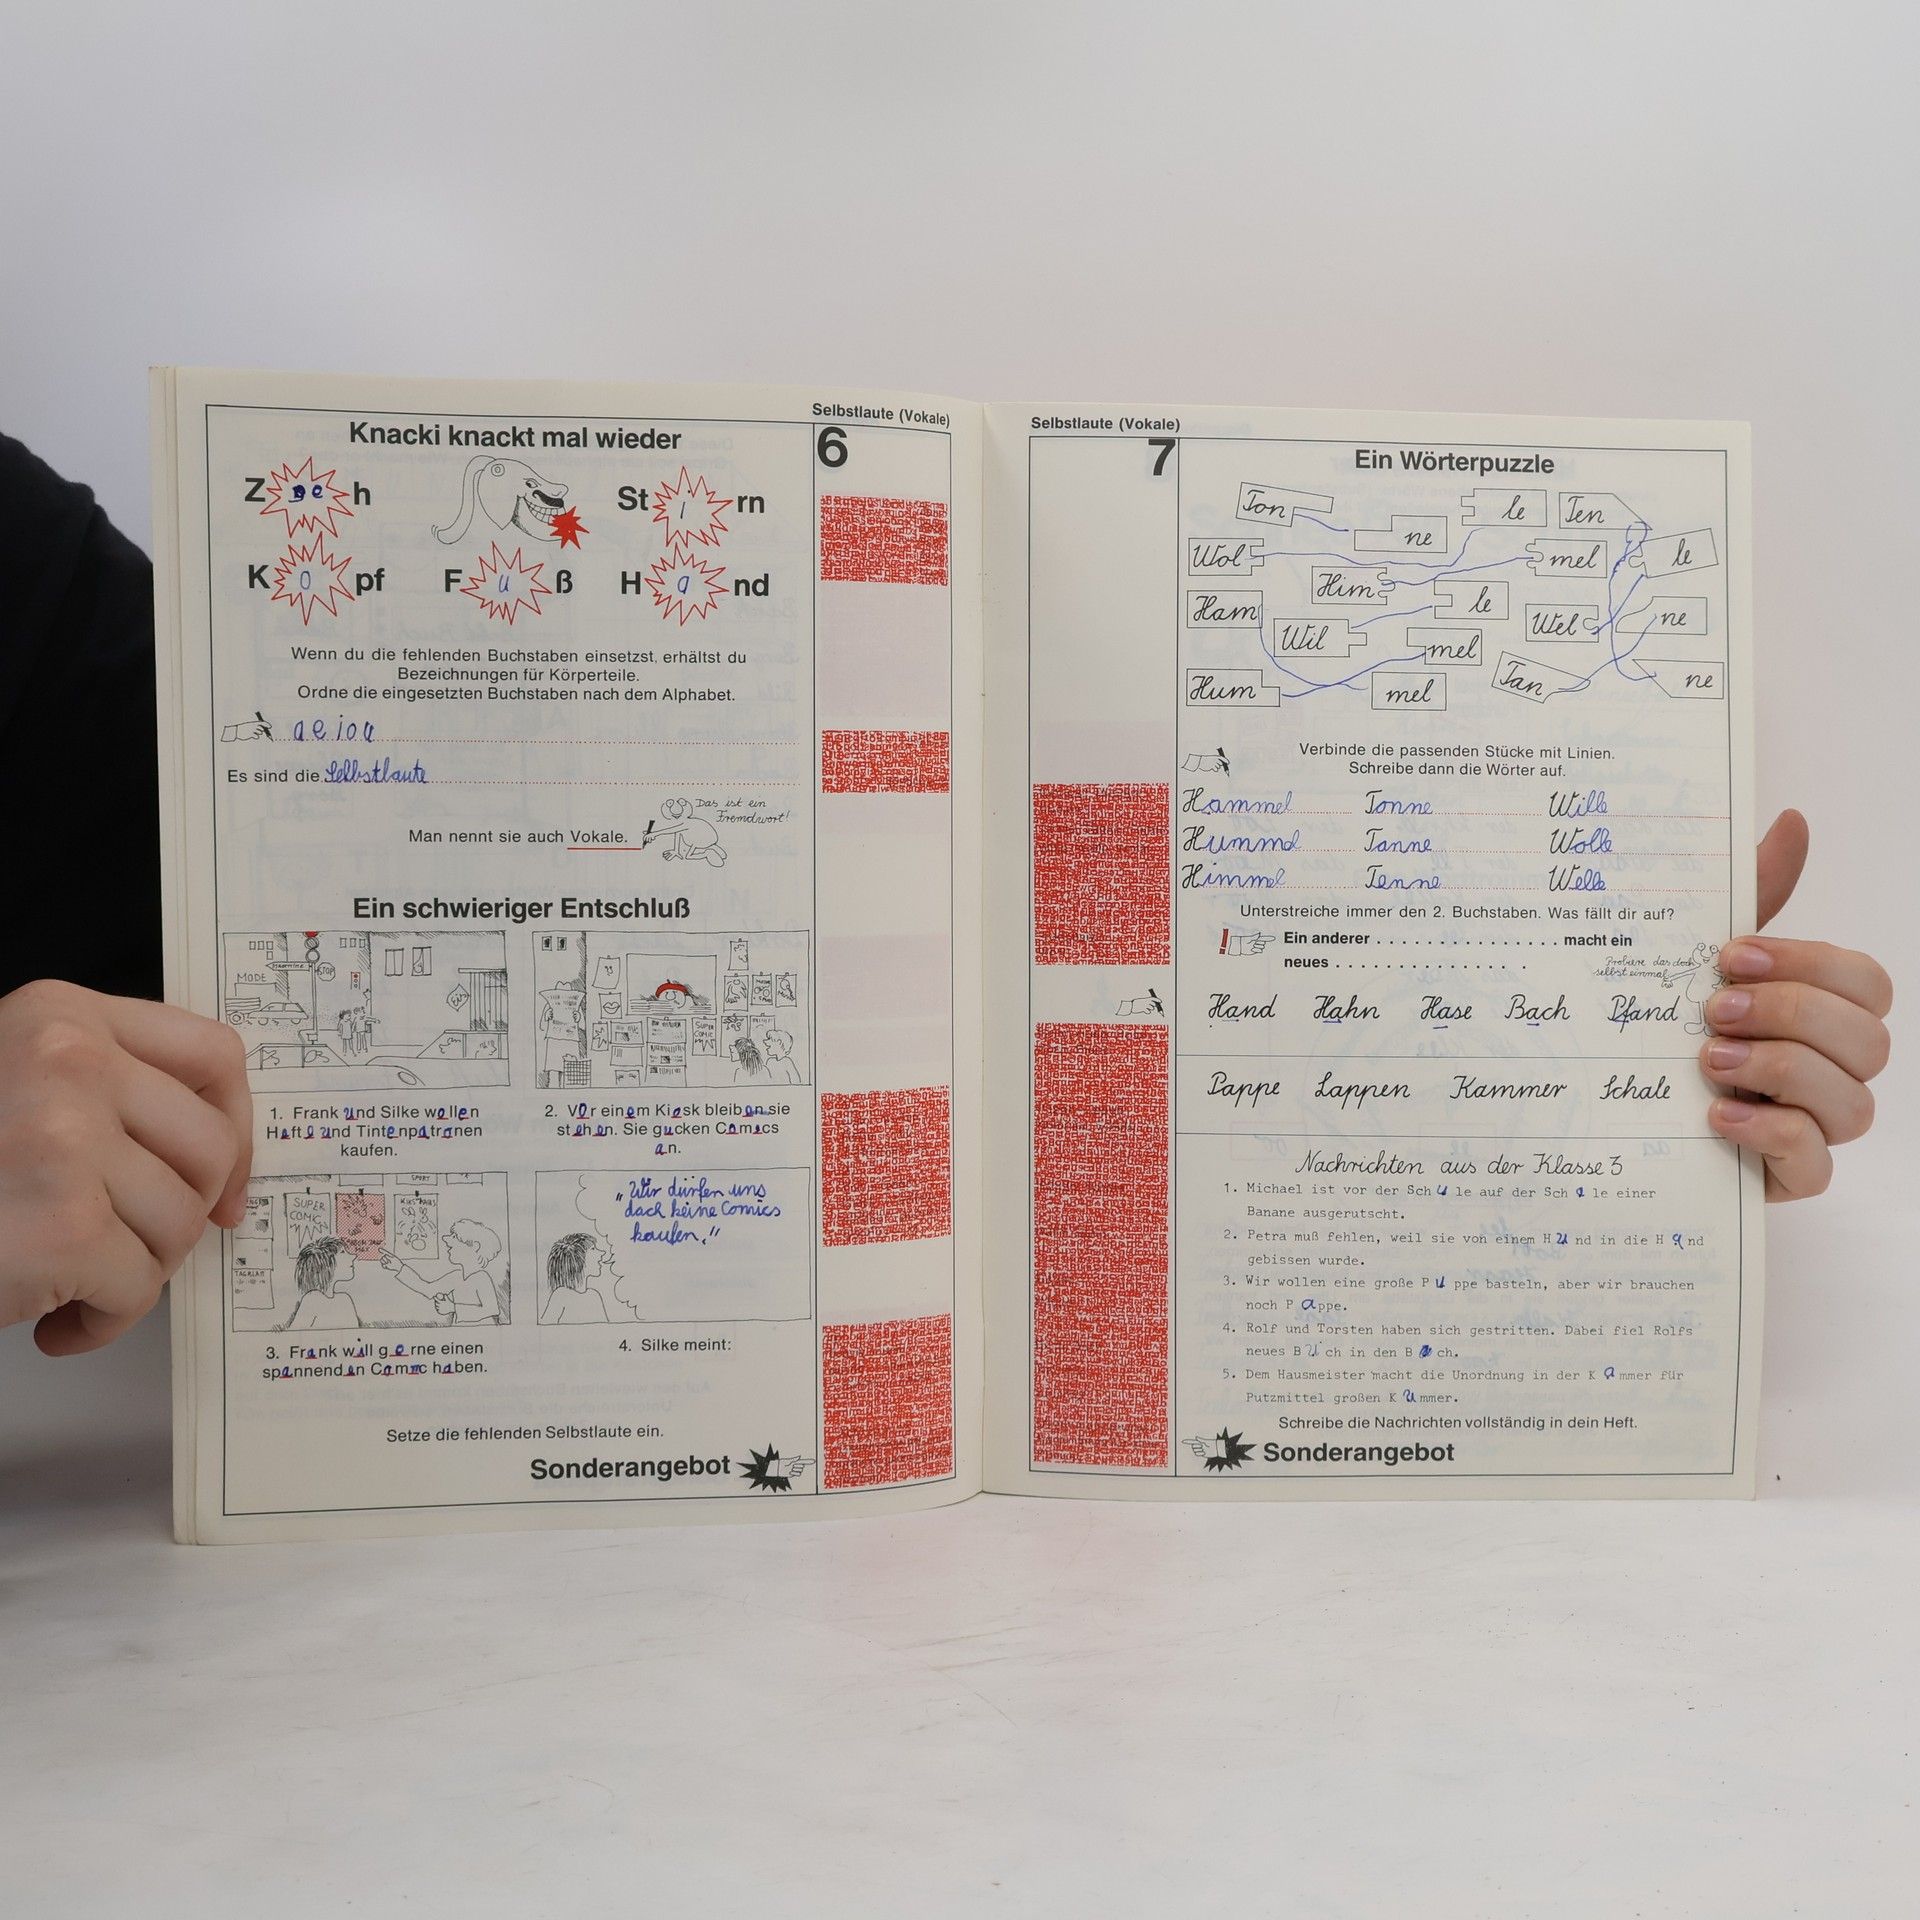 Selbstlaute (Vokale)
6
Knacki knackt mal wieder
Z e h
St i rn
K o pf
F u ß
H a nd
Wenn du die fehlenden Buchstaben einsetzst, erhältst du
Bezeichnungen für Körperteile.
Ordne die eingesetzten Buchstaben nach dem Alphabet.
a e i o u
Es sind die Selbstlaute
Das ist ein
Fremdwort!
Man nennt sie auch Vokale.
Ein schwieriger Entschluß
MODE
STOP
SUPER
COMIC
1. Frank und Silke wollen
Hefte und Tintenpatronen
kaufen.
2. Vor einem Kiosk bleiben sie
stehen. Sie gucken Comics
an.
SPORT
SUPER
COMIC
„Wir dürfen uns
doch keine Comics
kaufen."
3. Frank will gerne einen
spannenden Comic haben.
4. Silke meint:
Setze die fehlenden Selbstlaute ein.
Sonderangebot
Selbstlaute (Vokale)
7
Ein Wörterpuzzle
Ton
ne
le
Ten
Wol
mel
le
Him
Ham
le
Wel
ne
Wil
mel
Tan
ne
Hum
mel
Verbinde die passenden Stücke mit Linien.
Schreibe dann die Wörter auf.
Hammel Tonne Wille
Hummel Tanne Wolle
Himmel Tenne Welle
Unterstreiche immer den 2. Buchstaben. Was fällt dir auf?
Ein anderer . . . . . . . . . . . . . . . macht ein
neues . . . . . . . . . . . . . .
Probiere das doch
selbst einmal
Hand Hahn Hase Bach Pfand
Pappe Lappen Kammer Schale
Nachrichten aus der Klasse 3
1. Michael ist vor der Sch u le auf der Sch a le einer
Banane ausgerutscht.
2. Petra muß fehlen, weil sie von einem H u nd in die H a nd
gebissen wurde.
3. Wir wollen eine große P u ppe basteln, aber wir brauchen
noch P a ppe.
4. Rolf und Torsten haben sich gestritten. Dabei fiel Rolfs
neues B u ch in den B a ch.
5. Dem Hausmeister macht die Unordnung in der K a mmer für
Putzmittel großen K u mmer.
Schreibe die Nachrichten vollständig in dein Heft.
Sonderangebot